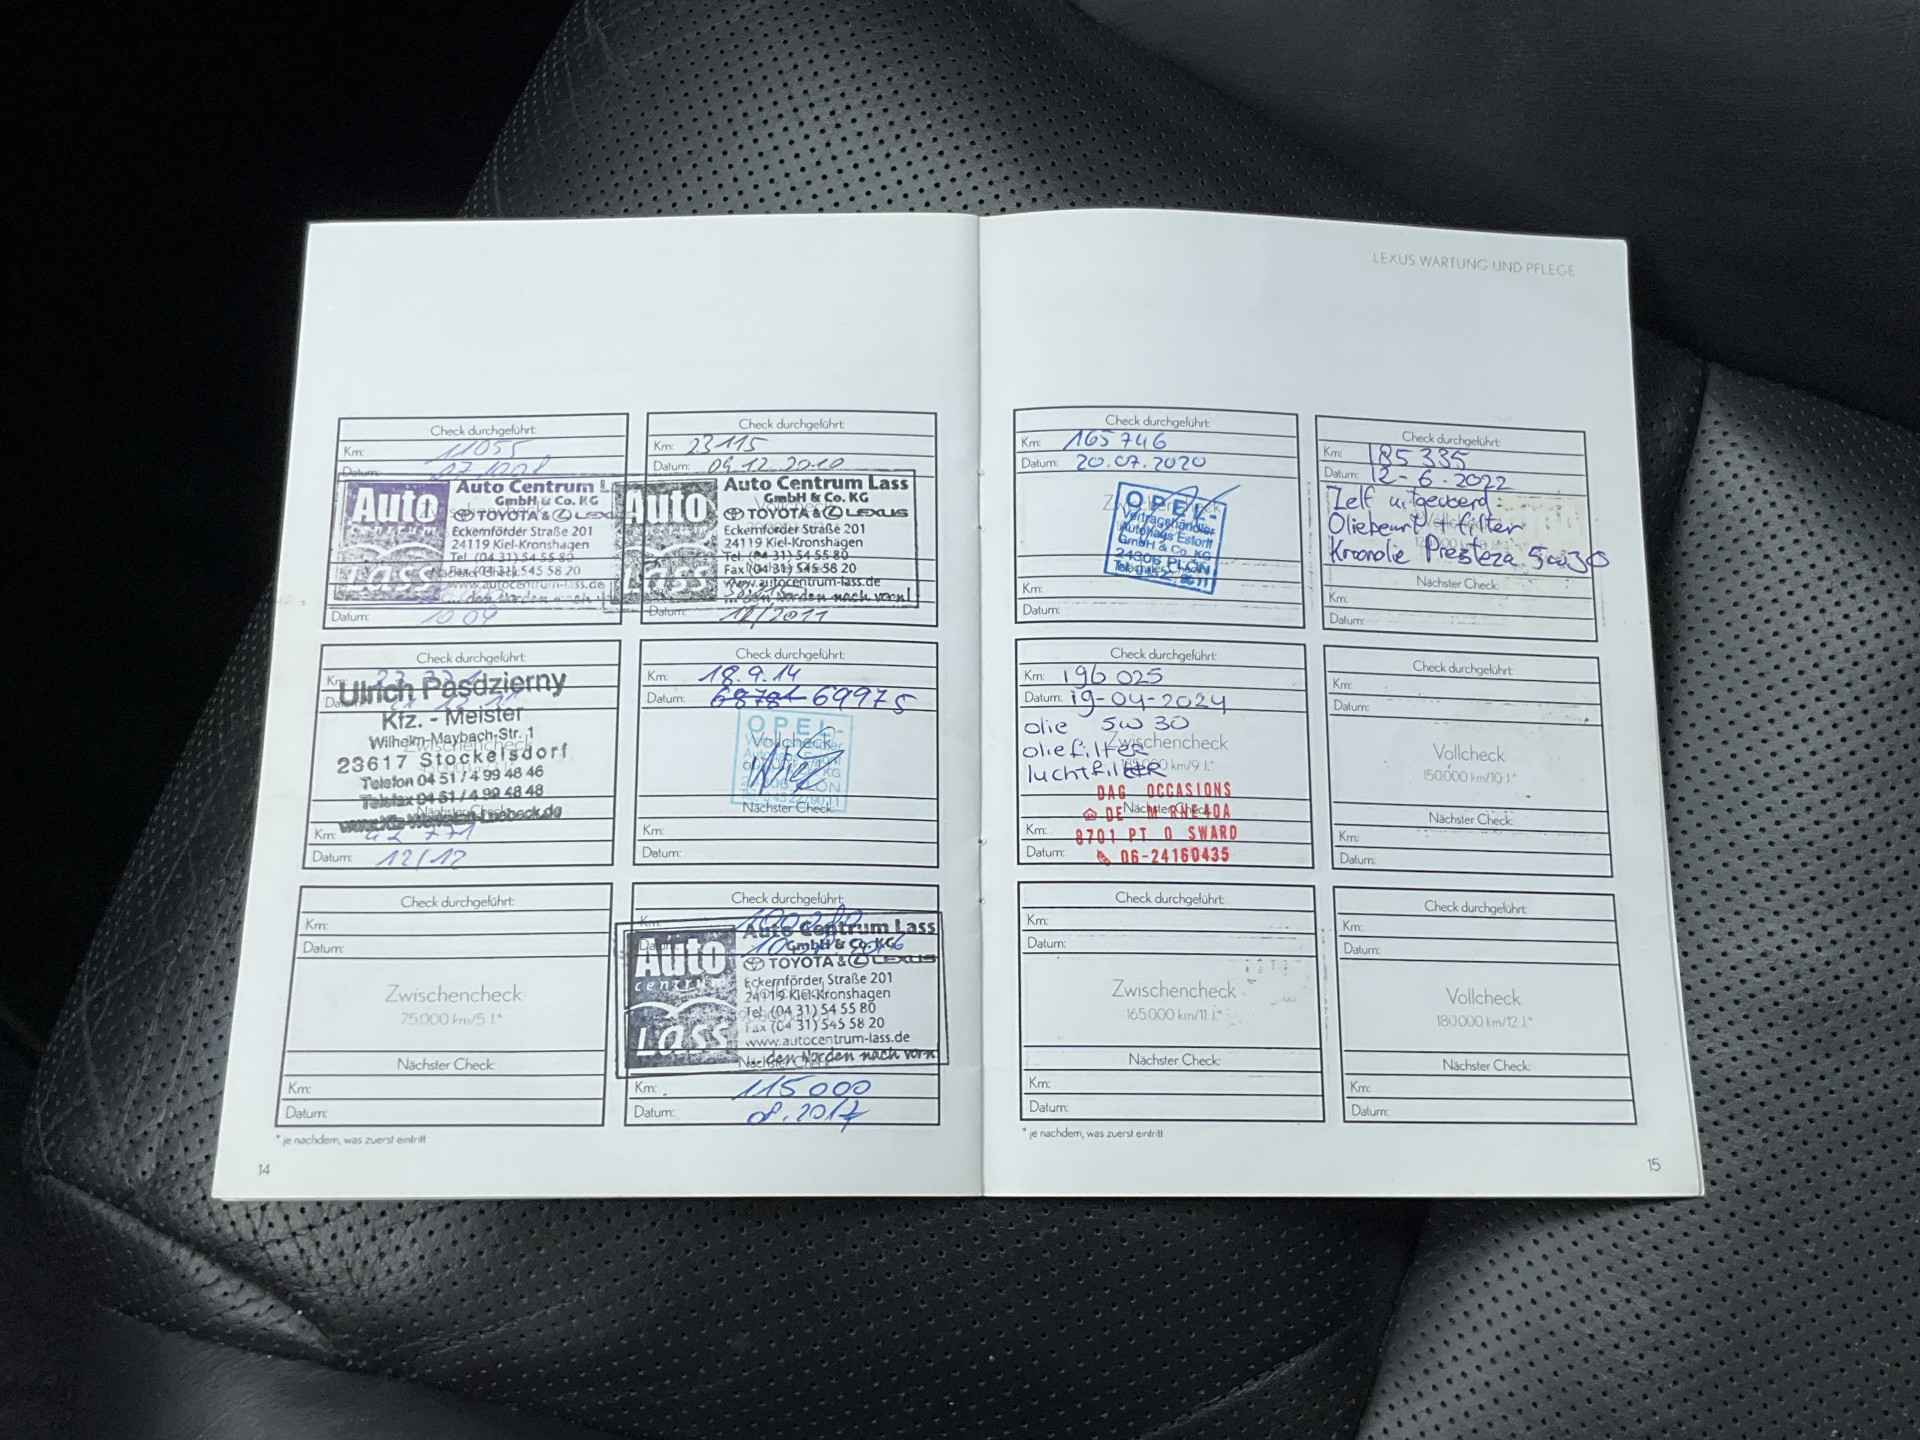 LEXUS WARTUNG UND PFLEGE
Check durchgeführt:
Km: 11055
Datum:
Auto
Lass
Auto Centrum
GmbH & Co. KG
TOYOTA & LEXUS
Eckernförder Straße 201
24119 Kiel-Kronshagen
Tel. (04 31) 54 55 80
Fax (04 31) 545 58 20
www.autocentrum-lass.de
Datum: 10.09
Check durchgeführt:
Km: 23115
Datum: 09.12.2010
Auto
Lass
Auto Centrum Lass
GmbH & Co. KG
TOYOTA & LEXUS
Eckernförder Straße 201
24119 Kiel-Kronshagen
Tel. (04 31) 54 55 80
Fax (04 31) 545 58 20
www.autocentrum-lass.de
... den Norden nach vorn!
Datum: 12/2011
Check durchgeführt:
Km:
Ulrich Pasdzierny
Kfz. - Meister
Wilhelm-Maybach-Str. 1
Zwischencheck
23617 Stockelsdorf
Telefon 04 51 / 4 99 48 46
Telefax 04 51 / 4 99 48 48
Nächster Check:
Km:
Datum: 12/12
Check durchgeführt:
Km: 18.9.14
Datum: 69975
OPEL-
Vollcheck
Nächster Check:
Km:
Datum:
Check durchgeführt:
Km:
Datum:
Zwischencheck
75.000 km/5 J.*
Nächster Check:
Km:
Datum:
Check durchgeführt:
Km:
Auto
centrum
Lass
Auto Centrum Lass
GmbH & Co. KG
TOYOTA & LEXUS
Eckernförder Straße 201
24119 Kiel-Kronshagen
Tel. (04 31) 54 55 80
Fax (04 31) 545 58 20
www.autocentrum-lass.de
... den Norden nach vorn
Nächster Check:
Km: 115000
Datum: 08.2017
* je nachdem, was zuerst eintritt
14
Check durchgeführt:
Km: 165746
Datum: 20.07.2020
OPEL-
Vertragshändler
Autohaus Estorff
GmbH & Co. KG
24306 PLÖN
Km:
Datum:
Check durchgeführt:
Km: 185335
Datum: 12-6.2022
Zelf uitgevoerd:
Oliebeurt + filter
Kroonolie Presteza 5w30
Nächster Check:
Km:
Datum:
Check durchgeführt:
Km: 196 025
Datum: 19-04-2024
olie 5w 30
oliefilter
Zwischencheck
luchtfilter
DAG OCCASIONS
Nächster Check:
8701 PT
06-24160435
Km:
Datum:
Check durchgeführt:
Km:
Datum:
Vollcheck
150.000 km/10 J.*
Nächster Check:
Km:
Datum:
Check durchgeführt:
Km:
Datum:
Zwischencheck
165.000 km/11 J.*
Nächster Check:
Km:
Datum:
Check durchgeführt:
Km:
Datum:
Vollcheck
180.000 km/12 J.*
Nächster Check:
Km:
Datum:
* je nachdem, was zuerst eintritt
15